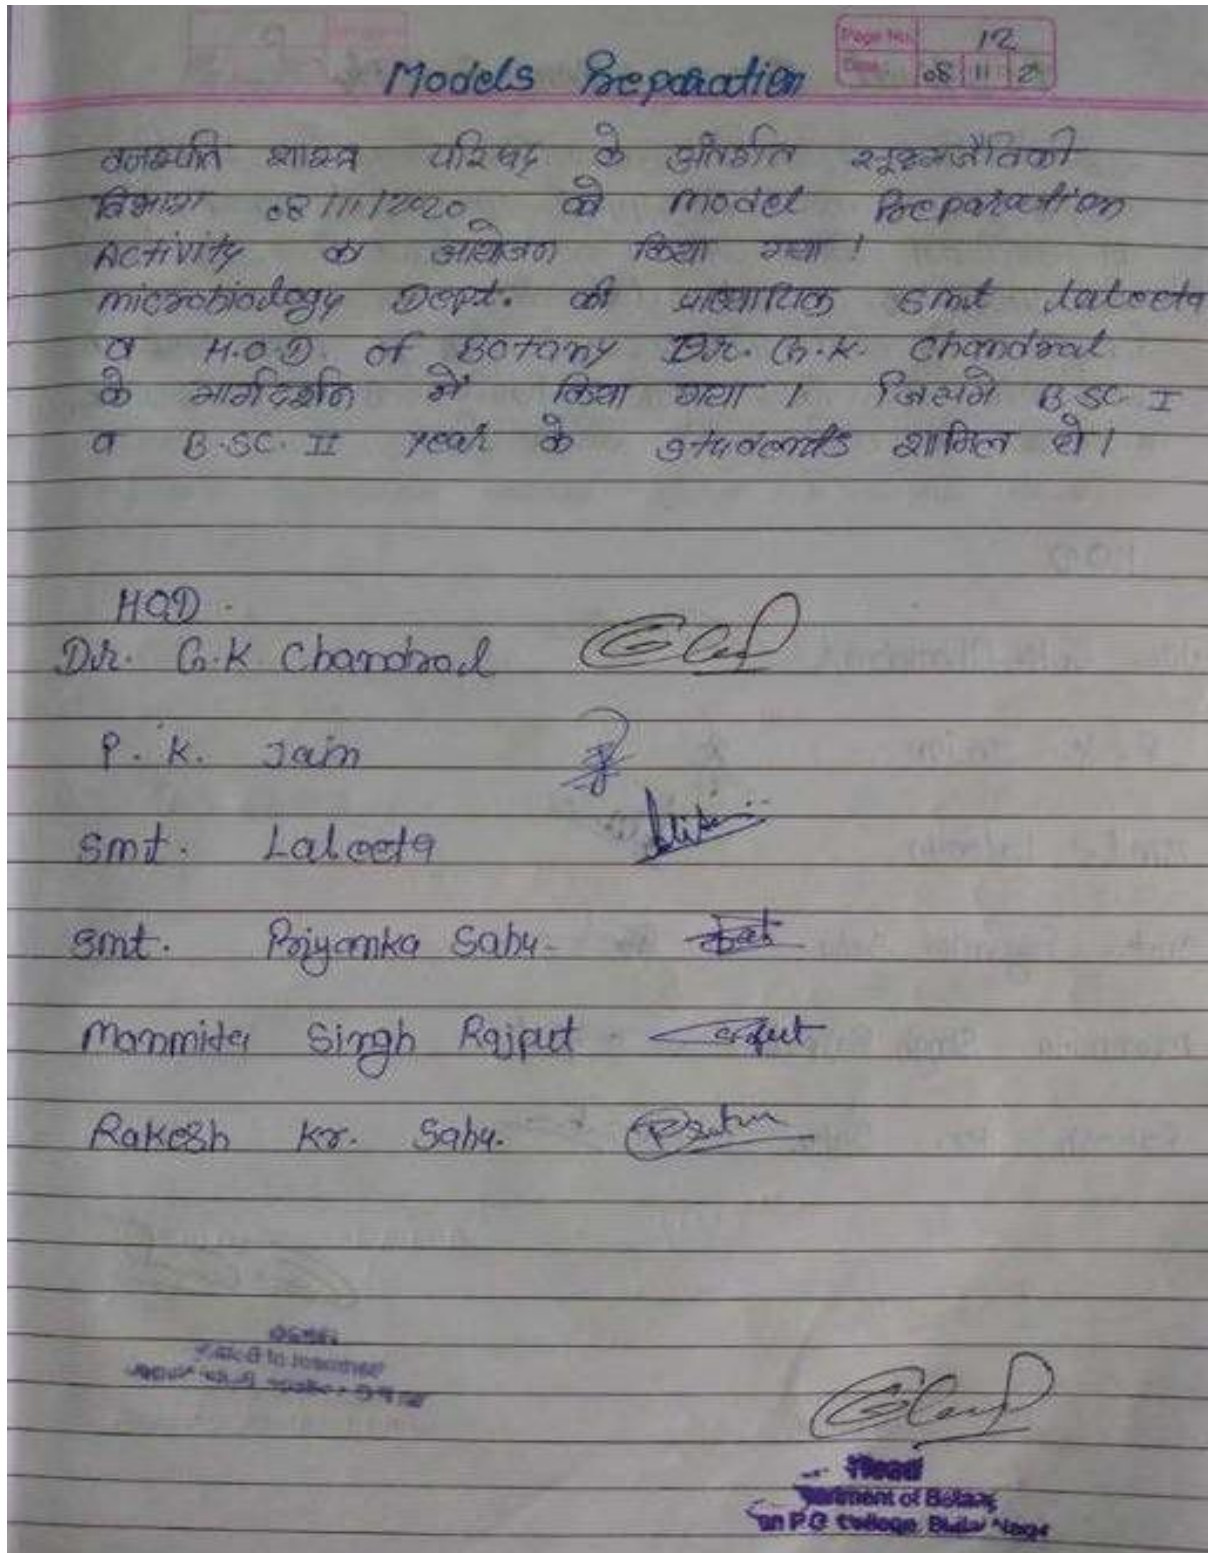 Page No. 12
Date 08 11 20
Models Preparation
वनस्पति शास्त्र परिषद के अंतर्गत सूक्ष्मजैविकी
विभाग 08/11/2020 को Model Preparation
Activity का आयोजन किया गया।
microbiology Dept. की प्राध्यापिका smt laleeta
व H.O.D. of Botany Dr. G.K. Chandral
के मार्गदर्शन में किया गया। जिसमे B.SC I
व B.SC. II year के students शामिल थे।
HOD.
Dr. G.K Chandral
P. K. Jain
smt. Laleeta
smt. Priyanka Sahu
Manmita Singh Rajput
Rakesh Kr. Sahu.
Head
Department of Botany
P.G. College